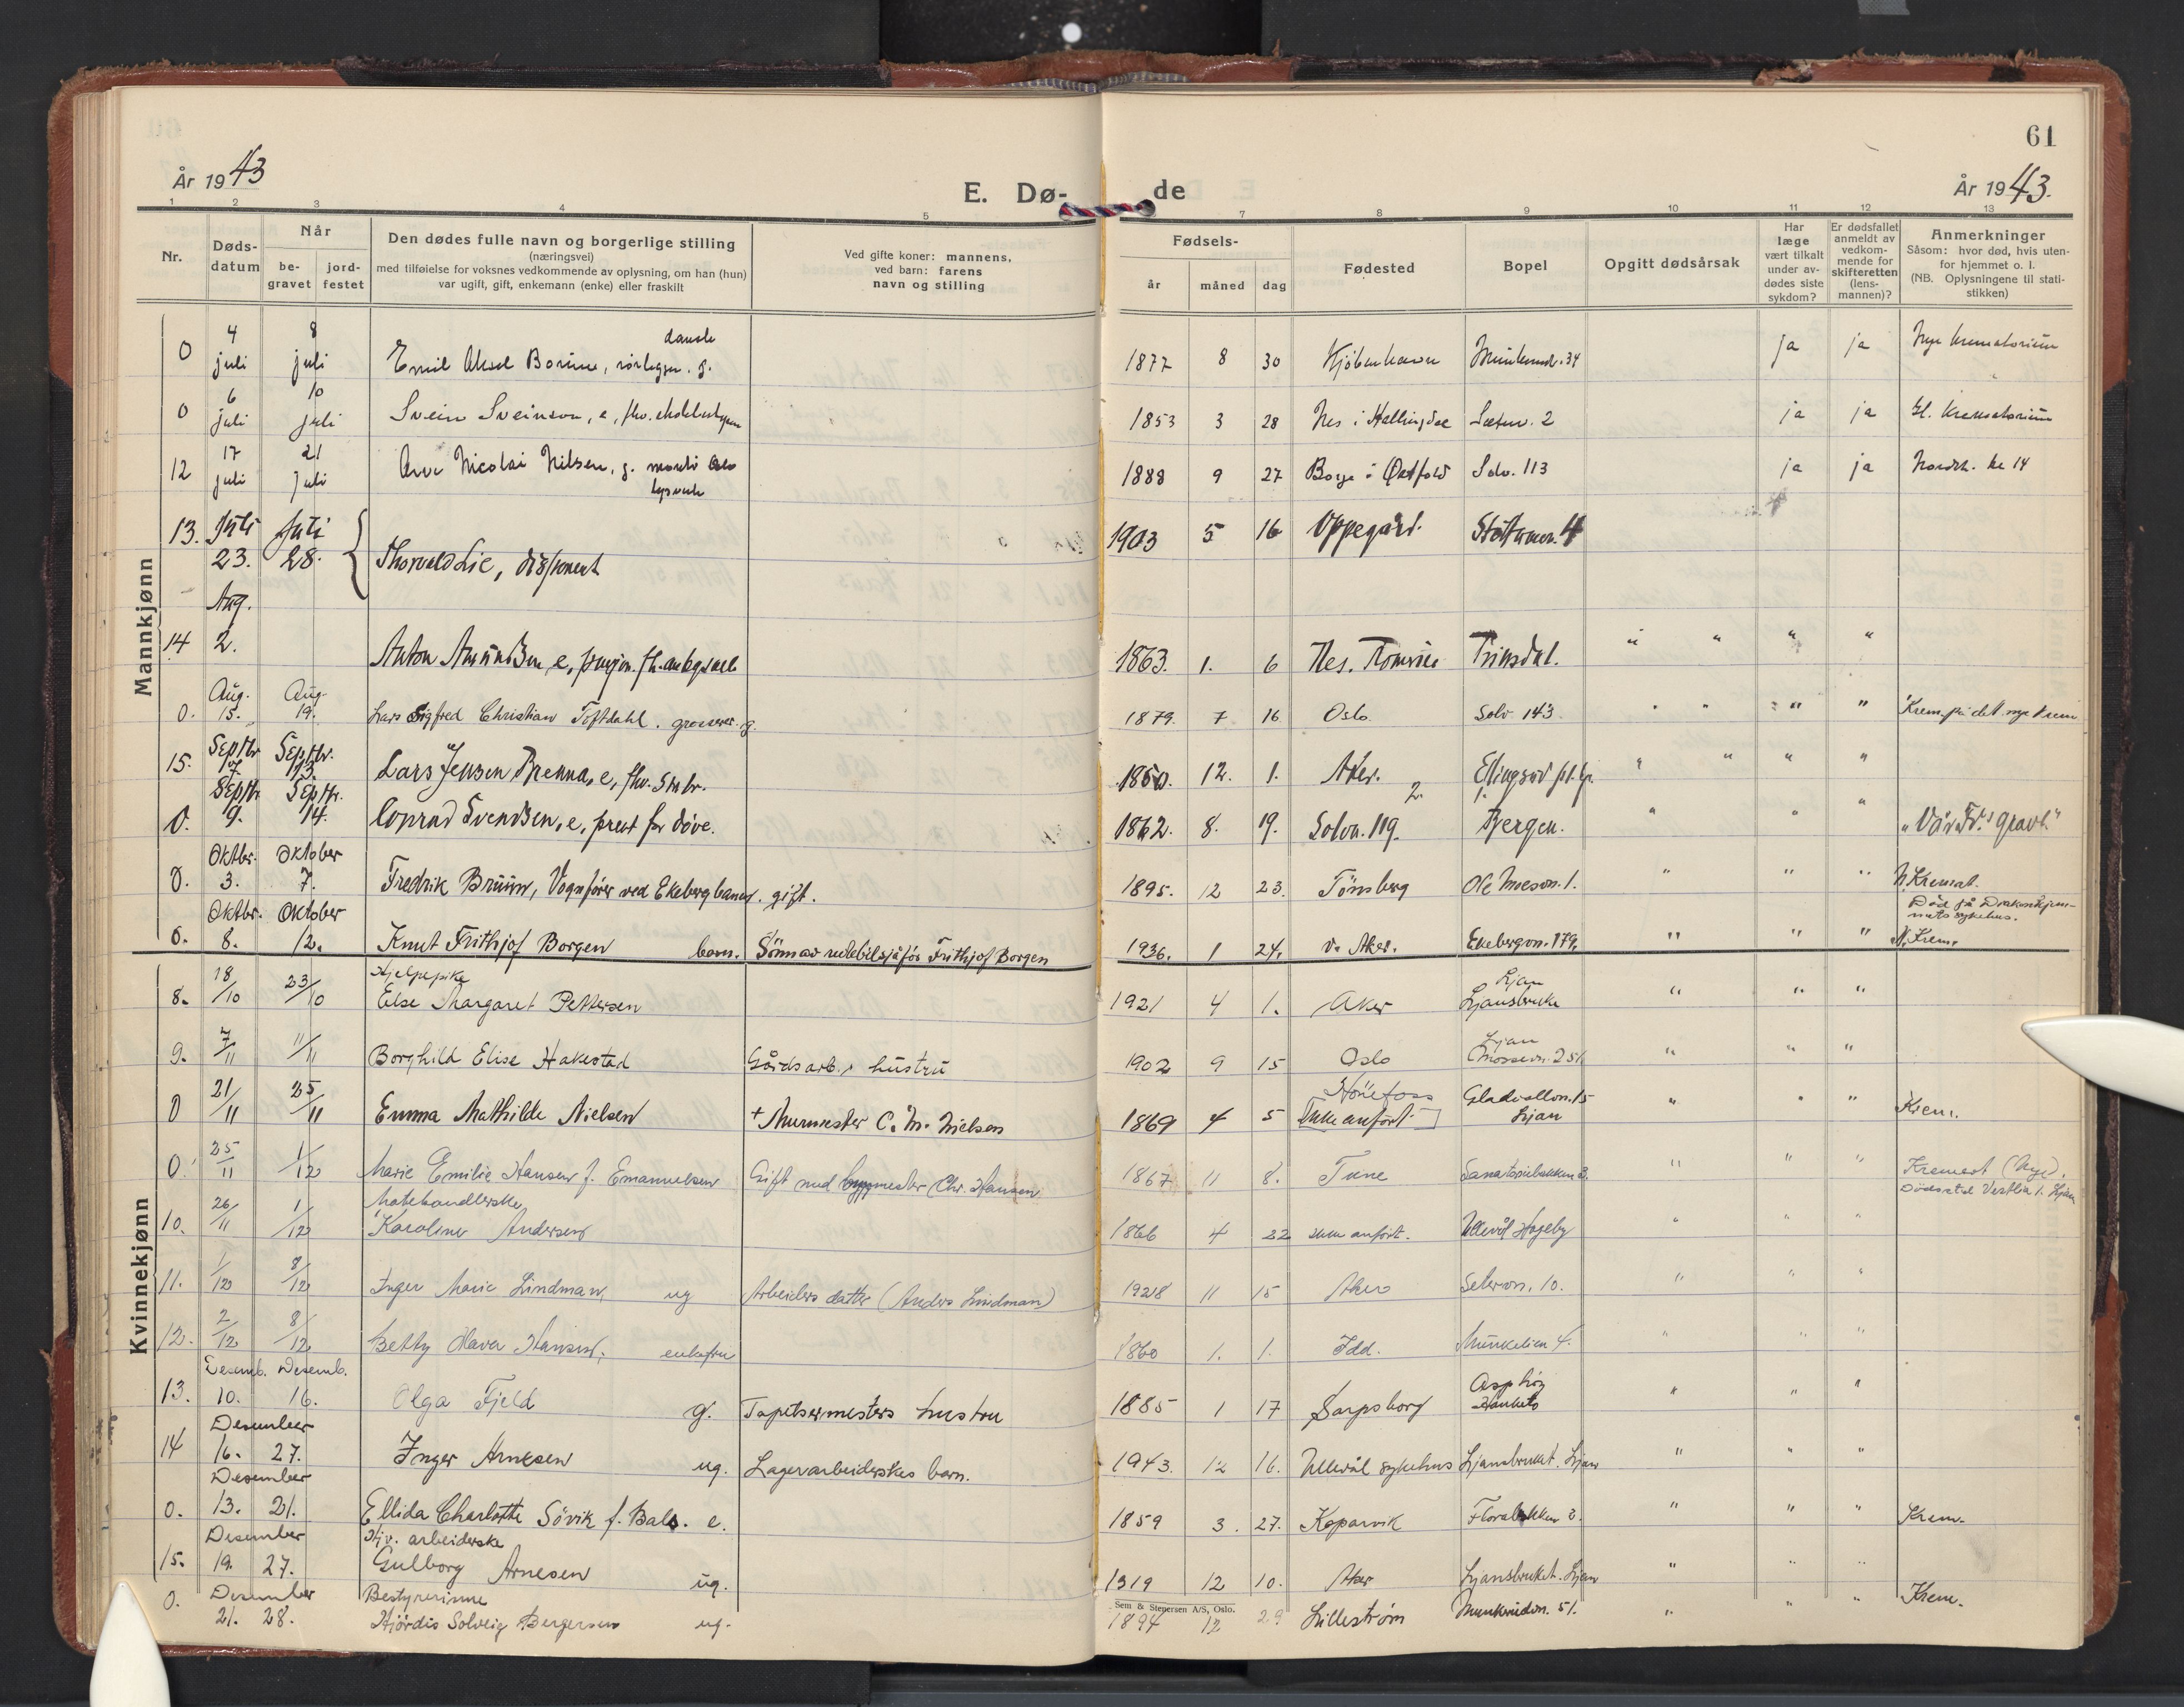 61
År 1943
E. Dø-
de
År 1943.
1 2 3 4 5 7 8 9 10 11 12 13
Nr.
Døds-
datum
Når
be-
gravet
jord-
festet
Den dødes fulle navn og borgerlige stilling
(næringsvei)
med tilføielse for voksnes vedkommende av oplysning, om han (hun)
var ugift, gift, enkemann (enke) eller fraskilt
Ved gifte koner: mannens,
ved barn: farens
navn og stilling
Fødsels-
år måned dag
Fødested
Bopel
Opgitt dødsårsak
Har
læge
vært tilkalt
under av-
dødes siste
sykdom?
Er dødsfallet
anmeldt av
vedkom-
mende for
skifteretten
(lens-
mannen)?
Anmerkninger
Såsom: hvor død, hvis uten-
for hjemmet o. l.
(NB. Oplysningene til stati-
stikken)
Mannkjønn
4 8 dansk
0 juli juli Emil Aksel g. 1877 8 30 Kjøbenhavn 34 ja ja Nye Krematorium
6 10
0 juli juli Svein Sveinson, e, fhv. 1853 3 28 Nes i Hallingdal 2 ja ja Gl. Krematorium
17 21
12 juli juli Nicolai Nilsen, g. Oslo 1888 9 27 Borge i Østfold Solv. 113 ja ja Nordst. 14
lysverk
13. Juli Juli 1903 5 16 Oppegård. 4
23. 28. Thorvald Lie, disponent
Aug.
14 2. Anton Amundsen, e, 1863. 1. 6 Nes. Romerike " " " "
Aug. Aug.
0. 15. 19. Lars Sigfred Christian Toftdahl. grosserer. g. 1879. 7 16 Oslo Solv 143. " " " " Krem. på det nye Krem
Septbr Septbr.
15. 7 13. Lars Jensen Brenna, e, fhv. 1850. 12. 1. Aker. " " " "
Septbr Septbr.
0. 9. 14. Conrad Svendsen, e, prest for døve. 1862. 8. 19. Solvn. 119. 2. Bergen. 1. " " " "Vår Fr.s gravl."
Oktbr. Oktober
0. 3. 7. Fredrik Bruun, Vognfører ved Ekebergbanen. gift. 1895. 12 23. Tønsberg Ole Moesv. 1. " " " N. Kremat.
Død på Diakonhjem-
mets sykehus.
Oktbr. Oktober
0. 8. 12. Knut Frithjof Borgen barn. Sønn av Frithjof Borgen 1936. 1 24. V. Aker. Ekebergvn. 179. " " " N. Krem.
Kvinnekjønn
Hjelpepike Ljan
8. 18/10 23/10 Else Margaret Pettersen 1921 4 1. Aker Ljansbruket " " "
Ljan
9. 7/11 11/11 Borghild Elise Hakestad Gårdsarb. hustru 1902 9 15 Oslo Mossevn. 251 " " "
Hönefoss Gladiollvn. 15
0 21/11 25/11 Emma Mathilde Nielsen + Murmester C. M. Nielsen 1869 4 5 [Ikke anført] Ljan " " " Krem.
0. 25/11 1/12 Marie Emilie Hansen f. Emanuelsen Gift med byggmester Chr. Hansen 1867 11 8. Tune Sanatoriebakken 3. " " " Kremert (Nye).
Dödssted Vestlia 1. Ljan
Matehandlerske
10. 26/11 1/12 Karoline Andersen 1866 4 22 ikke anført. Ullevål Hageby " " "
11. 1/12 8/12 Inger Marie Lindman, ug Arbeiders datter (Anders Lindman) 1928 11 15 Aker Setervn. 10. " " "
12. 2/12 8/12 Betty Olava Hansen, enkefru 1860 1. 1. Idd. Munkelien 4. " " "
Desemb. Desemb.
13. 10. 16. Olga Fjeld g. Tapetsermesters hustru 1885 1 17 Sarpsborg " " "
Desember
14 16. 27. Inger Arnesen ug. Lagerarbeiderskes barn. 1943. 12 16. Ullevål sykehus Ljansbruket. Ljan " " "
Desember
0. 13. 21. Ellida Charlotte Sövik f. e. 1859 3. 27. Kopervik Florabakken 3. " " " Krem.
Desember
Hjv. arbeiderske
15. 19. 27. Gulborg Arnesen ug. 1919 12 10. Aker Ljansbruket. Ljan " " "
Desember Bestyrerinne
Sem & Stenersen A/S, Oslo.
0. 21. 28. Hjördis Solveig Bergersen ug. 1894 12 29 Lillestrøm Munkerudvn. 51. " " " Krem.